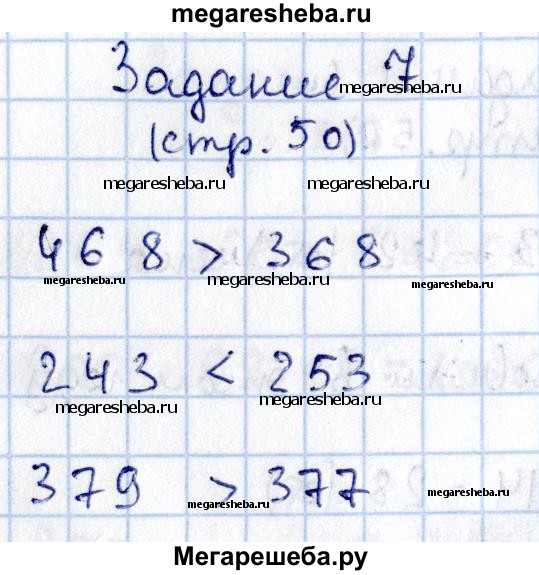 megaresheba.ru
megaresheba.ru
Задание 7
megaresheba.ru
(стр. 50)
megaresheba.ru megaresheba.ru
468 > 368
megaresheba.ru megaresheba.ru
243 < 253
megaresheba.ru megaresheba.ru
379 > 377
megaresheba.ru megaresheba.ru
Мегарешеба.ру